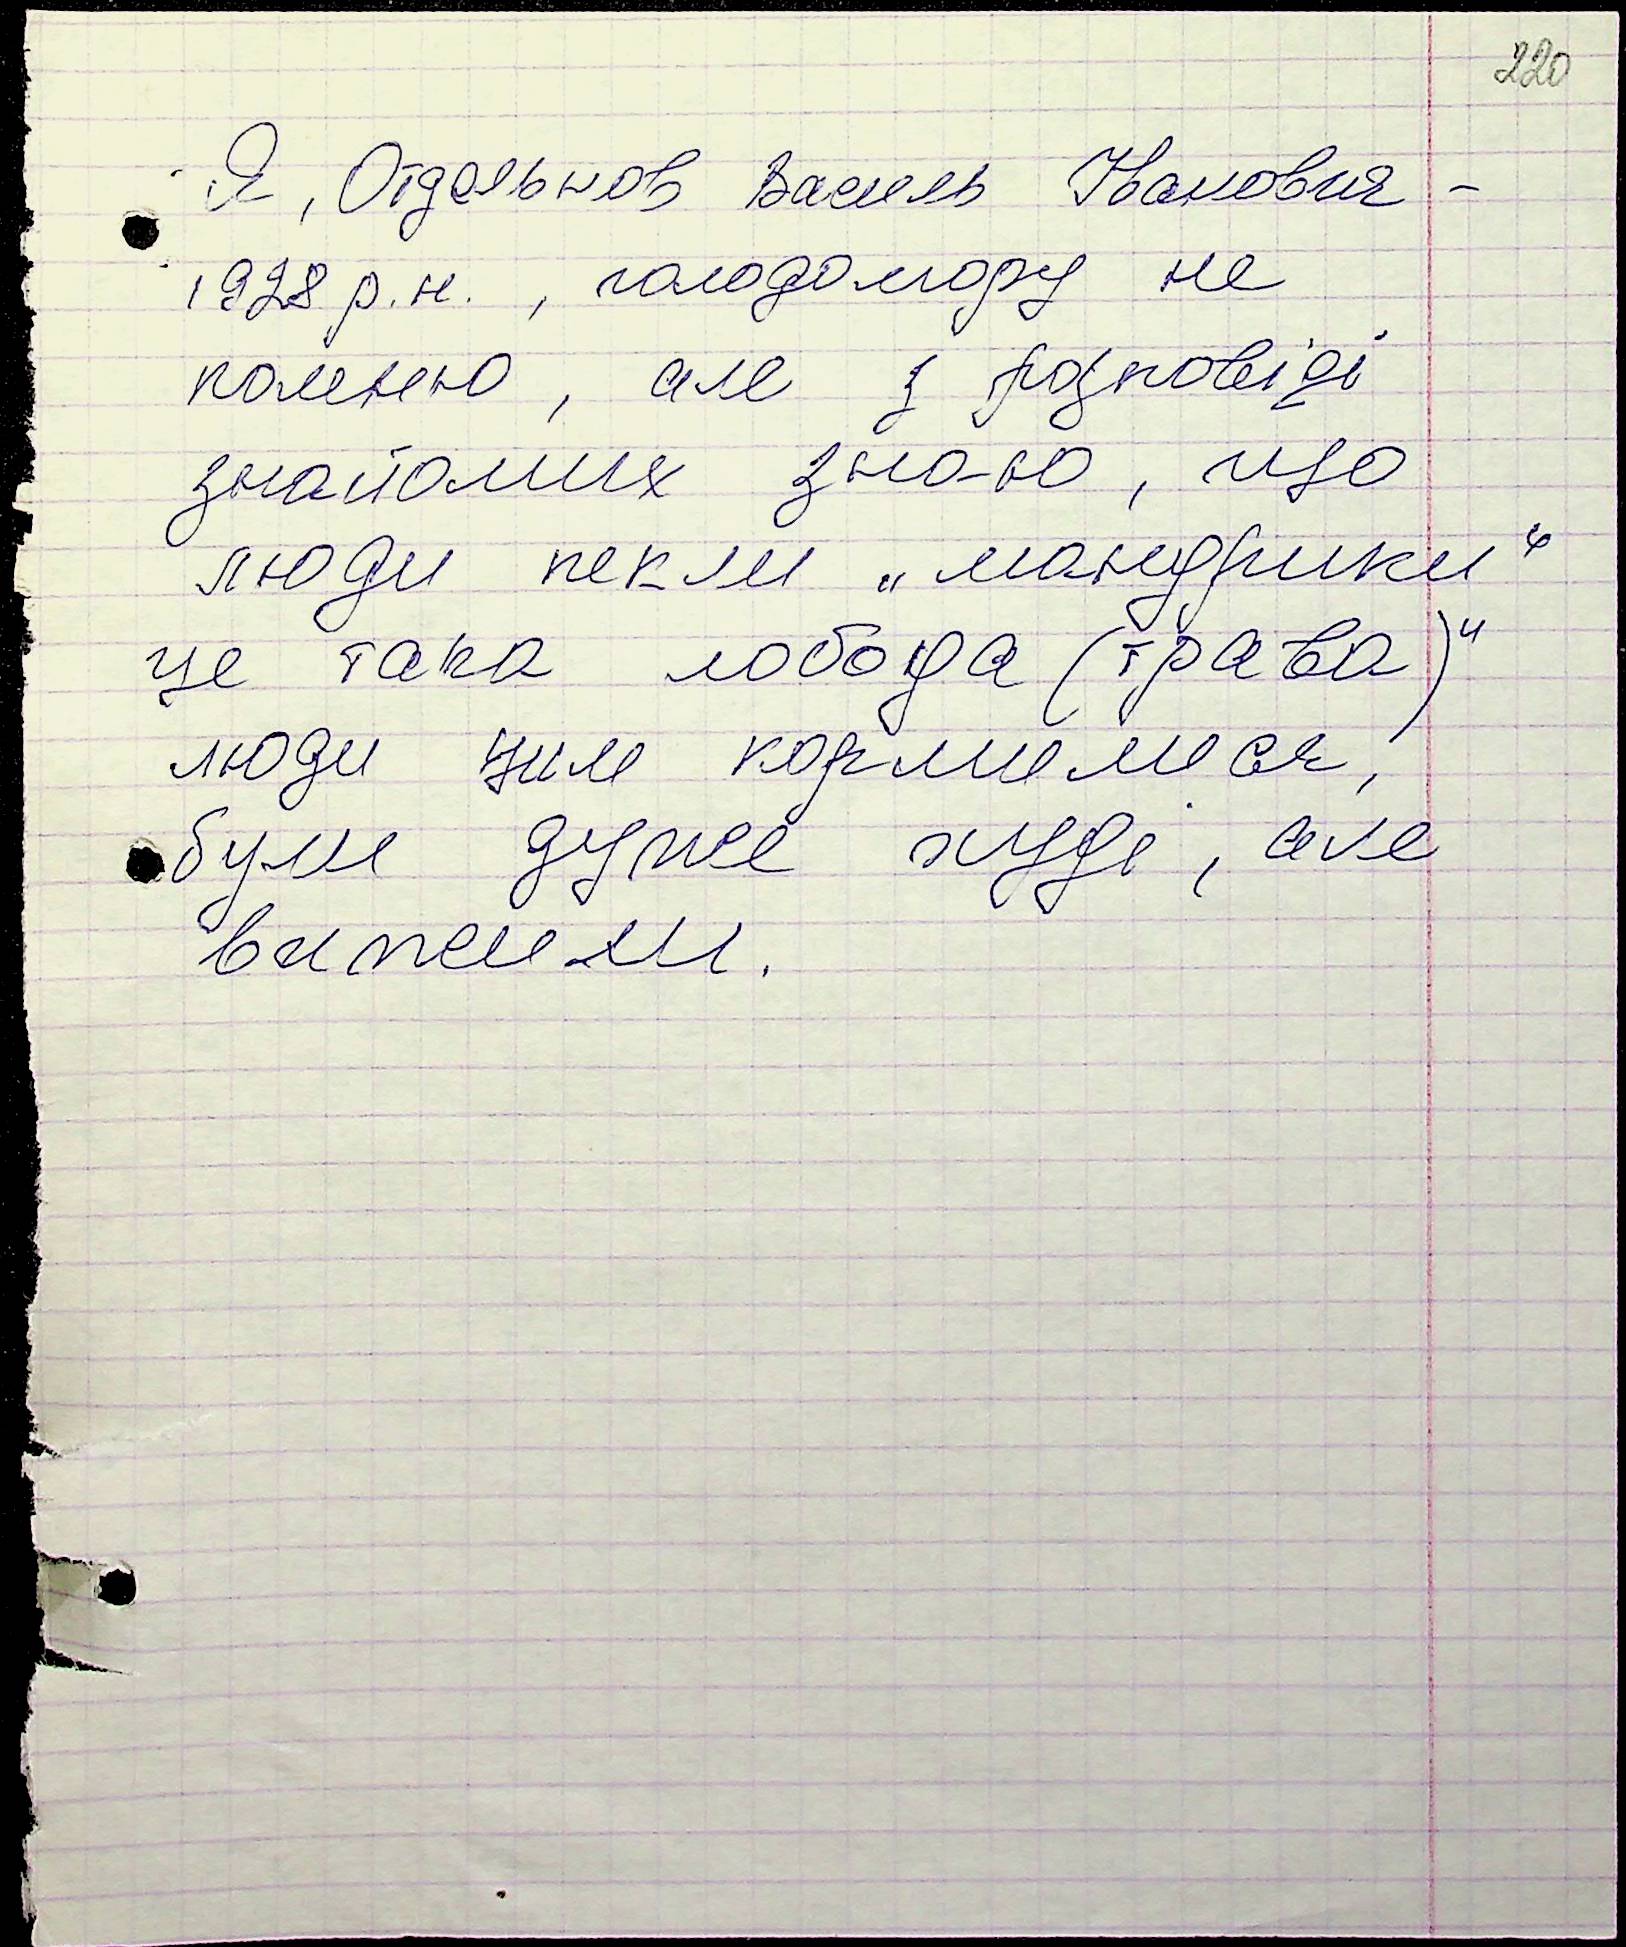 220
Я, Отдельнов Василь Іванович -
1928 р.н., голодомору не
помню, але з розповіді
знайомих знаю, що
люди пекли „мандрики“
це така лобода (трава)“
люди цим кормилися,
були дуже худі, але
вижили.